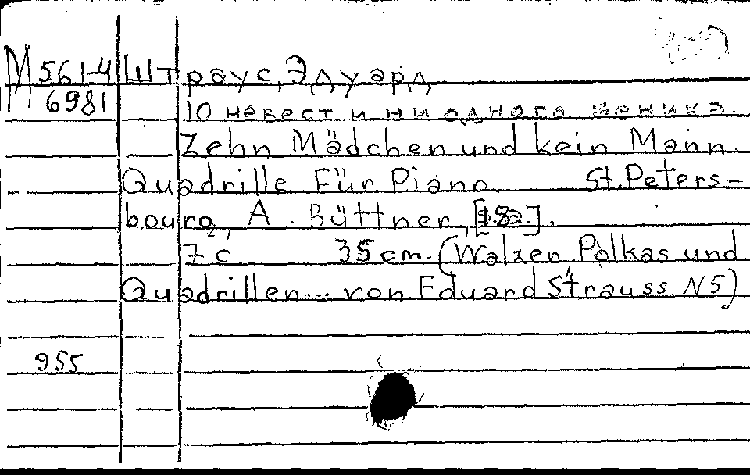 М 561-4 Штраус, Эдуард
М 6981
10 невест и ни одного жениха.
Zehn Mädchen und kein Mann.
Quadrille Für Piano. St. Peters-
bourg, A. Büttner, [18 ].
7 c 35 cm. (Walzer Polkas und
Quadrillen ... von Eduard Strauss N5)
955